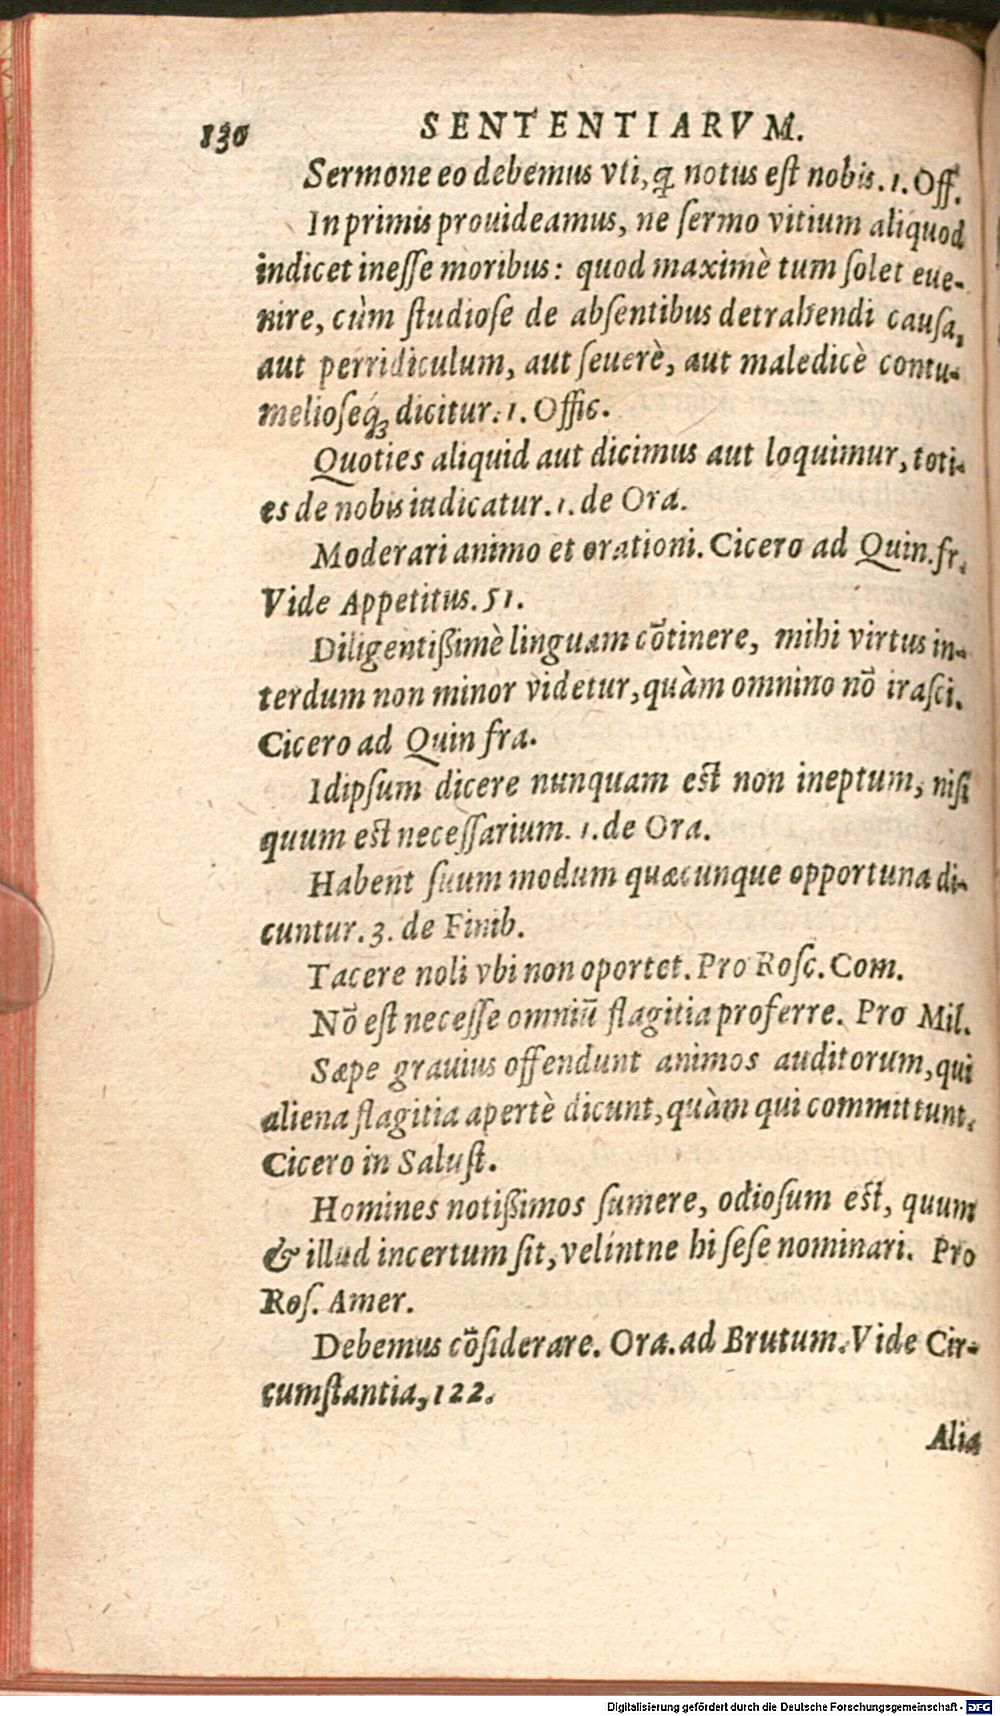 130 SENTENTIARVM.
Sermone eo debemus vti, ꝗ notus eſt nobis. 1. Off.
In primis prouideamus, ne ſermo vitium aliquod
indicet ineſſe moribus: quod maximè tum ſolet eue-
nire, cùm ſtudioſe de abſentibus detrahendi cauſa,
aut perridiculum, aut ſeuerè, aut maledicè contu-
melioſeq́ꝫ dicitur. 1. Offic.
Quoties aliquid aut dicimus aut loquimur, toti-
es de nobis iudicatur. 1. de Ora.
Moderari animo et orationi. Cicero ad Quin. fr.
Vide Appetitus. 51.
Diligentißimè linguam cōtinere, mihi virtus in-
terdum non minor videtur, quàm omnino nō iraſci.
Cicero ad Quin fra.
Idipſum dicere nunquam eſt non ineptum, niſi
quum eſt neceſſarium. 1. de Ora.
Habent ſuum modum quæcunque opportuna di-
cuntur. 3. de Finib.
Tacere noli vbi non oportet. Pro Roſc. Com.
Nō eſt neceſſe omniū flagitia proferre. Pro Mil.
Sæpe grauius offendunt animos auditorum, qui
aliena flagitia apertè dicunt, quàm qui committunt.
Cicero in Saluſt.
Homines notißimos ſumere, odioſum eſt, quum
& illud incertum ſit, velintne hi ſeſe nominari. Pro
Roſ. Amer.
Debemus cōſiderare. Ora. ad Brutum. Vide Cir-
cumſtantia, 122.
Alia
Digitalisierung gefördert durch die Deutsche Forschungsgemeinschaft - DFG